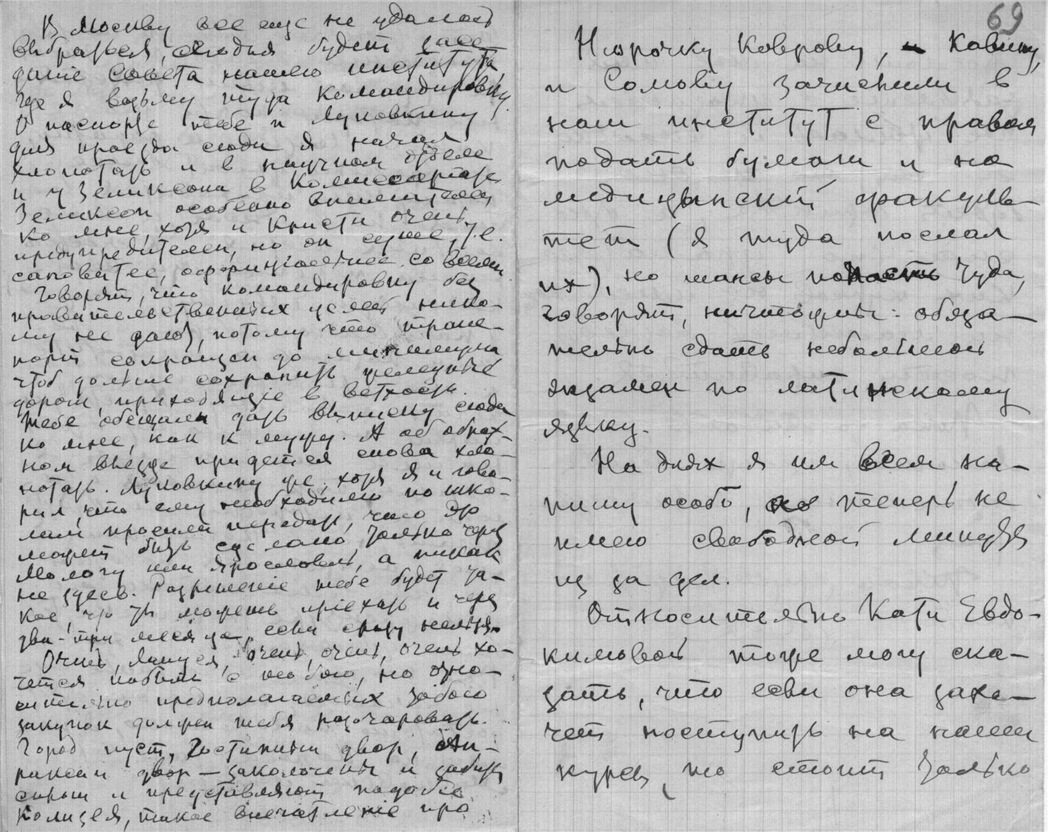 В Москву все еще не удалось
выбраться, сегодня будет засе-
дание Совета нашего института
где я возьму туда командировку.
О паспорте тебе и Луповкину
для проезда сюда я начал
хлопотать и в научном отделе
и у Зеликсона в Комиссариате
Зеликсон особенно внимателен
ко мне, хотя и Кристи очень
предупредителен, но он суше, т.е.
сановитее, официальнее со всеми
Говорят, что командировку без
правительственных целей нико-
му не дают, потому что транс-
порт сокращен до минимума
чтоб дольше сохранить железные
дороги, приходящие в ветхость.
Тебе обещали дать выписку сюда
ко мне, как к мужу. А об обрат-
ном выезде придется снова хло-
потать. Луповкину же, хотя я и гово-
рил, что ему необходимо по шко-
лам просили передать, что это
может быть сделано только через
Мологу или Ярославль, а никак
не здесь. Разрешение тебе будет та-
кое, что ты можешь приехать и через
два-три месяца, если сразу нельзя.
Очень, очень, очень, очень хо-
чется побыть с тобою, но отно-
сительно предполагаемых тобою
закупок должен тебя разочаровать.
Город пуст, Гостиный двор, Ап-
раксин двор — заколочены и забиты
сырый и представляют подобие
Колизея, такое впечатление про
69
Нюрочку Коврову, Кавину,
и Сомову зачислили в
наш институт с правом
подать бумаги и на
медицынский факуль-
тет (я туда послал
их), но шансы попасть туда,
говорят, ничтожны: обяза-
тельно сдать небольшой
экзамен по латинскому
языку.
На днях я им всем на-
пишу особо, но теперь не
имею свободной минуты
из за дел.
Относительно Кати Евдо-
кимовой тоже могу ска-
зать, что если она захо-
чет поступить на наши
курсы, то стоит только